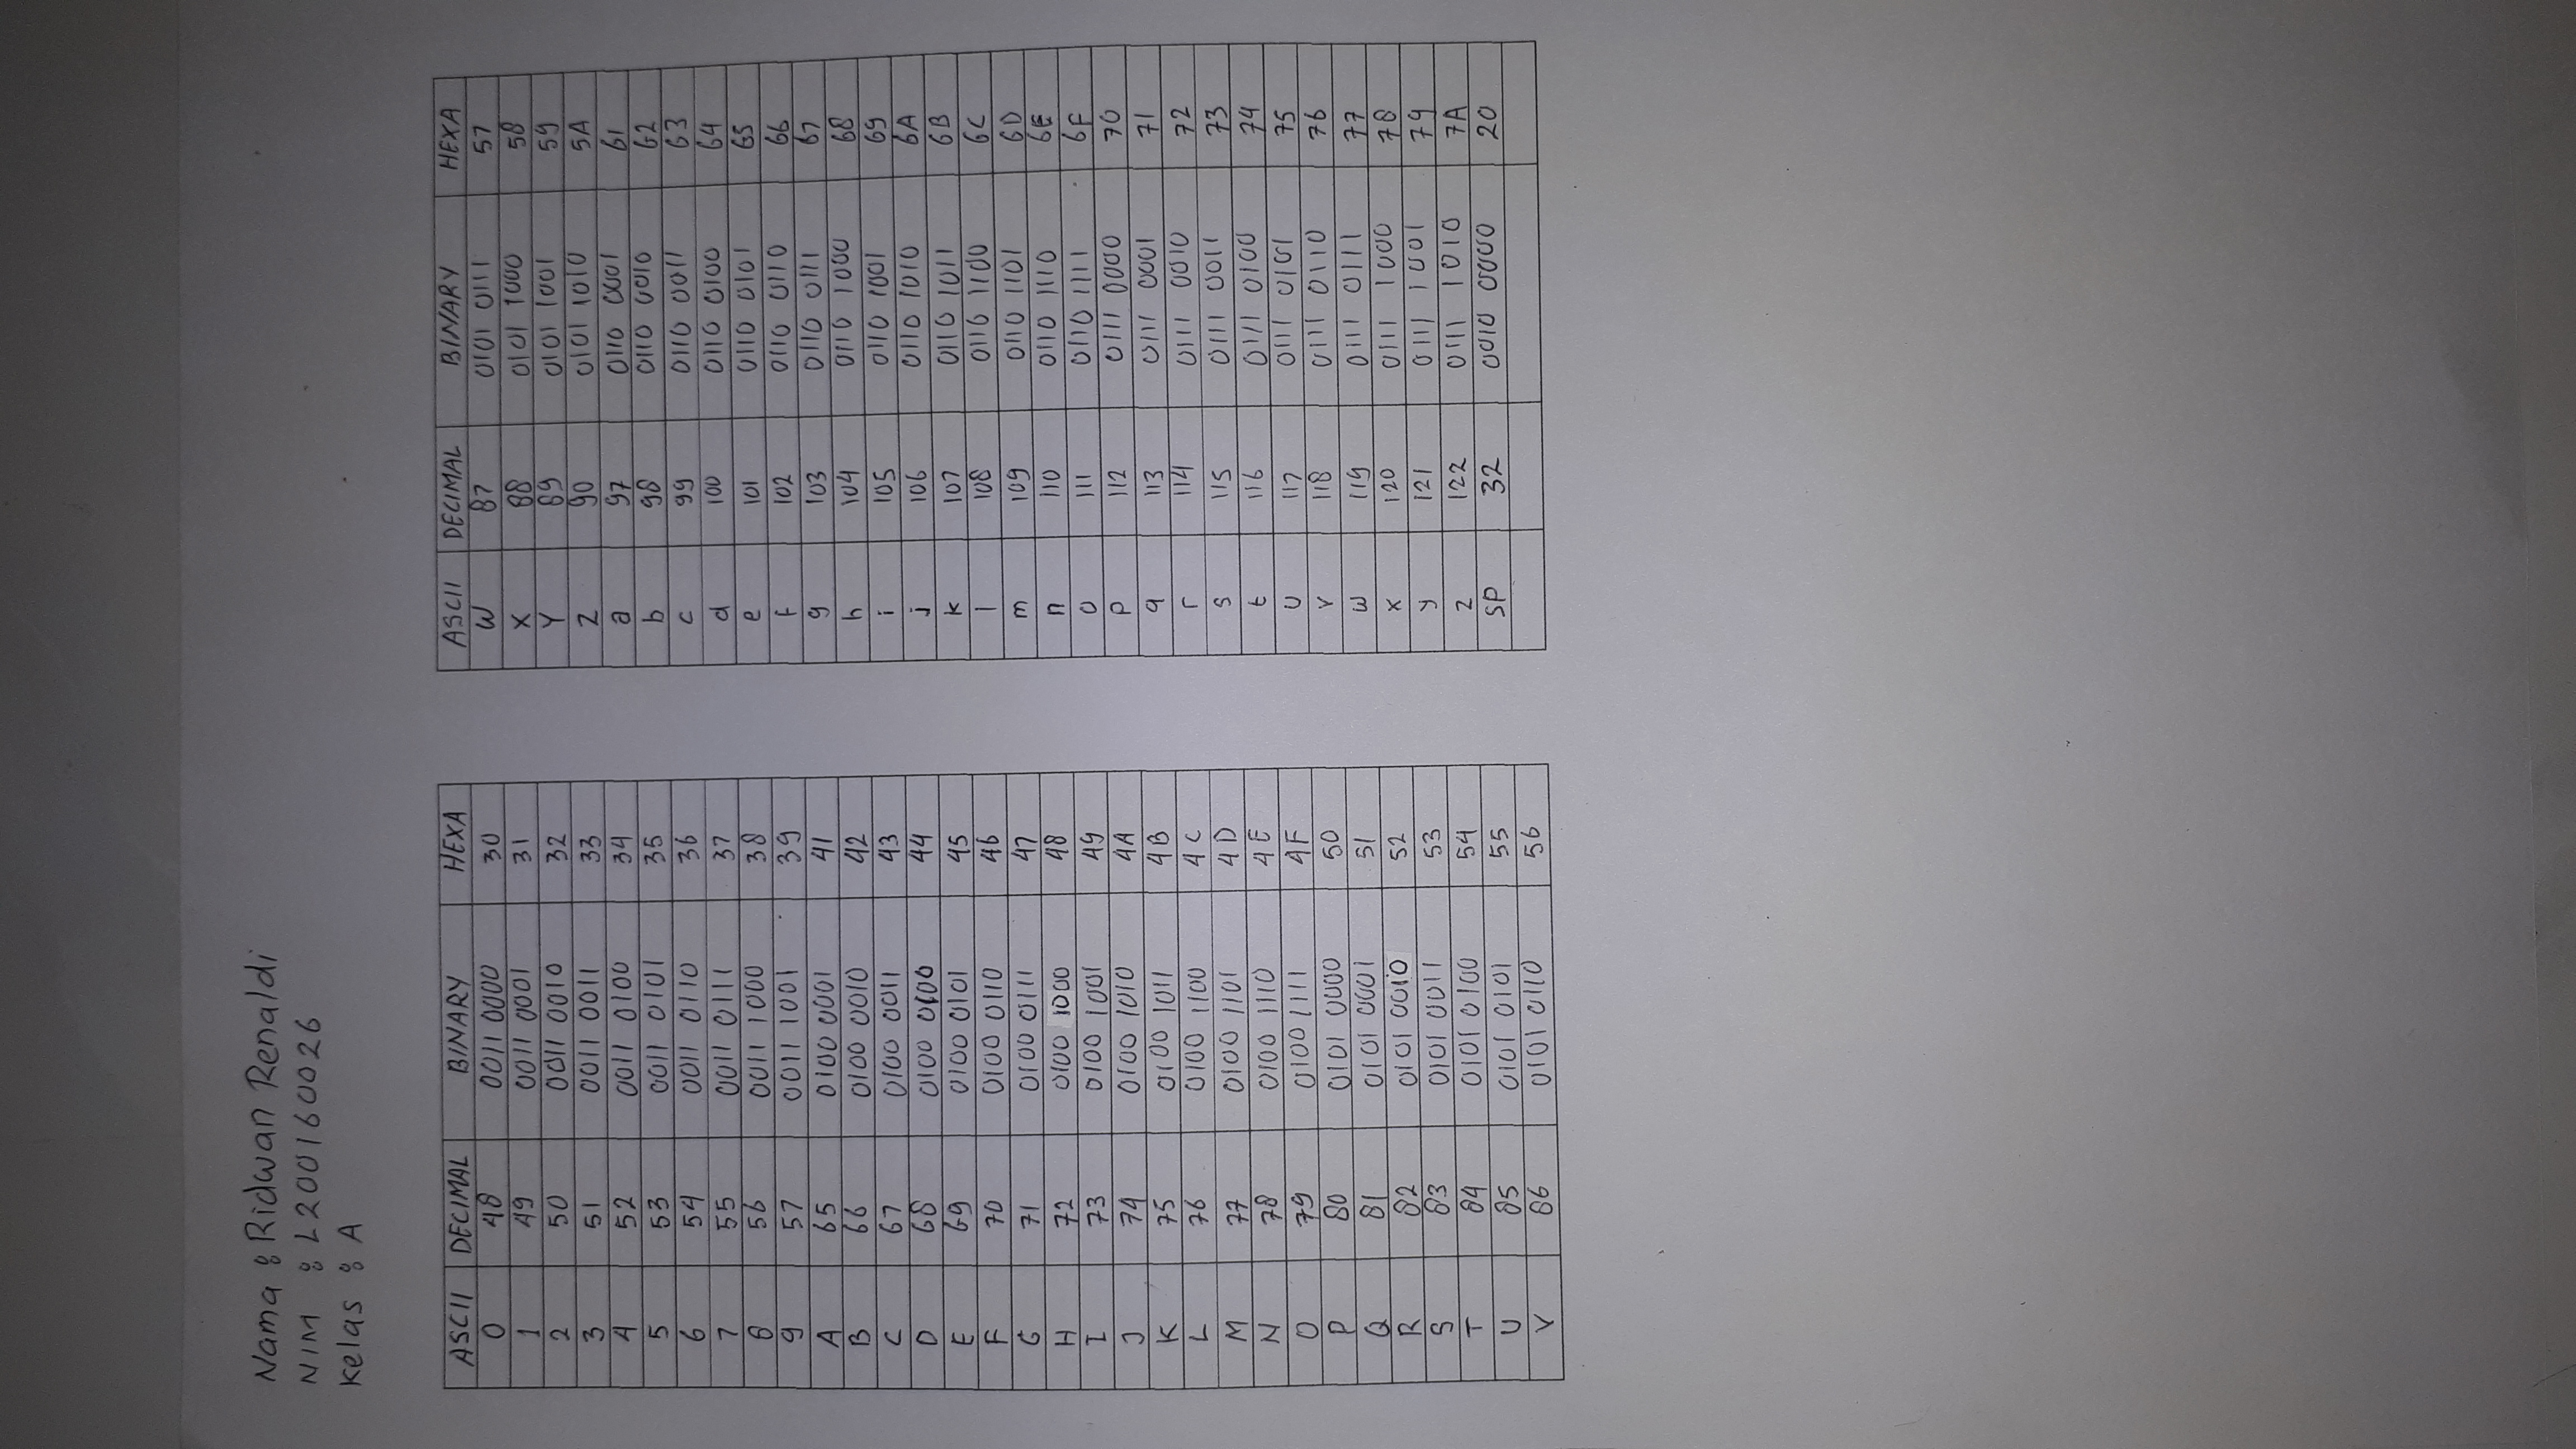 Nama : Ridwan Renaldi
NIM : L200160026
Kelas : A
ASCII DECIMAL BINARY HEXA
0 48 0011 0000 30
1 49 0011 0001 31
2 50 0011 0010 32
3 51 0011 0011 33
4 52 0011 0100 34
5 53 0011 0101 35
6 54 0011 0110 36
7 55 0011 0111 37
8 56 0011 1000 38
9 57 0011 1001 39
A 65 0100 0001 41
B 66 0100 0010 42
C 67 0100 0011 43
D 68 0100 0100 44
E 69 0100 0101 45
F 70 0100 0110 46
G 71 0100 0111 47
H 72 0100 1000 48
I 73 0100 1001 49
J 74 0100 1010 4A
K 75 0100 1011 4B
L 76 0100 1100 4C
M 77 0100 1101 4D
N 78 0100 1110 4E
O 79 0100 1111 4F
P 80 0101 0000 50
Q 81 0101 0001 51
R 82 0101 0010 52
S 83 0101 0011 53
T 84 0101 0100 54
U 85 0101 0101 55
V 86 0101 0110 56
ASCII DECIMAL BINARY HEXA
W 87 0101 0111 57
X 88 0101 1000 58
Y 89 0101 1001 59
Z 90 0101 1010 5A
a 97 0110 0001 61
b 98 0110 0010 62
c 99 0110 0011 63
d 100 0110 0100 64
e 101 0110 0101 65
f 102 0110 0110 66
g 103 0110 0111 67
h 104 0110 1000 68
i 105 0110 1001 69
j 106 0110 1010 6A
k 107 0110 1011 6B
l 108 0110 1100 6C
m 109 0110 1101 6D
n 110 0110 1110 6E
o 111 0110 1111 6F
p 112 0111 0000 70
q 113 0111 0001 71
r 114 0111 0010 72
s 115 0111 0011 73
t 116 0111 0100 74
u 117 0111 0101 75
v 118 0111 0110 76
w 119 0111 0111 77
x 120 0111 1000 78
y 121 0111 1001 79
z 122 0111 1010 7A
SP 32 0010 0000 20